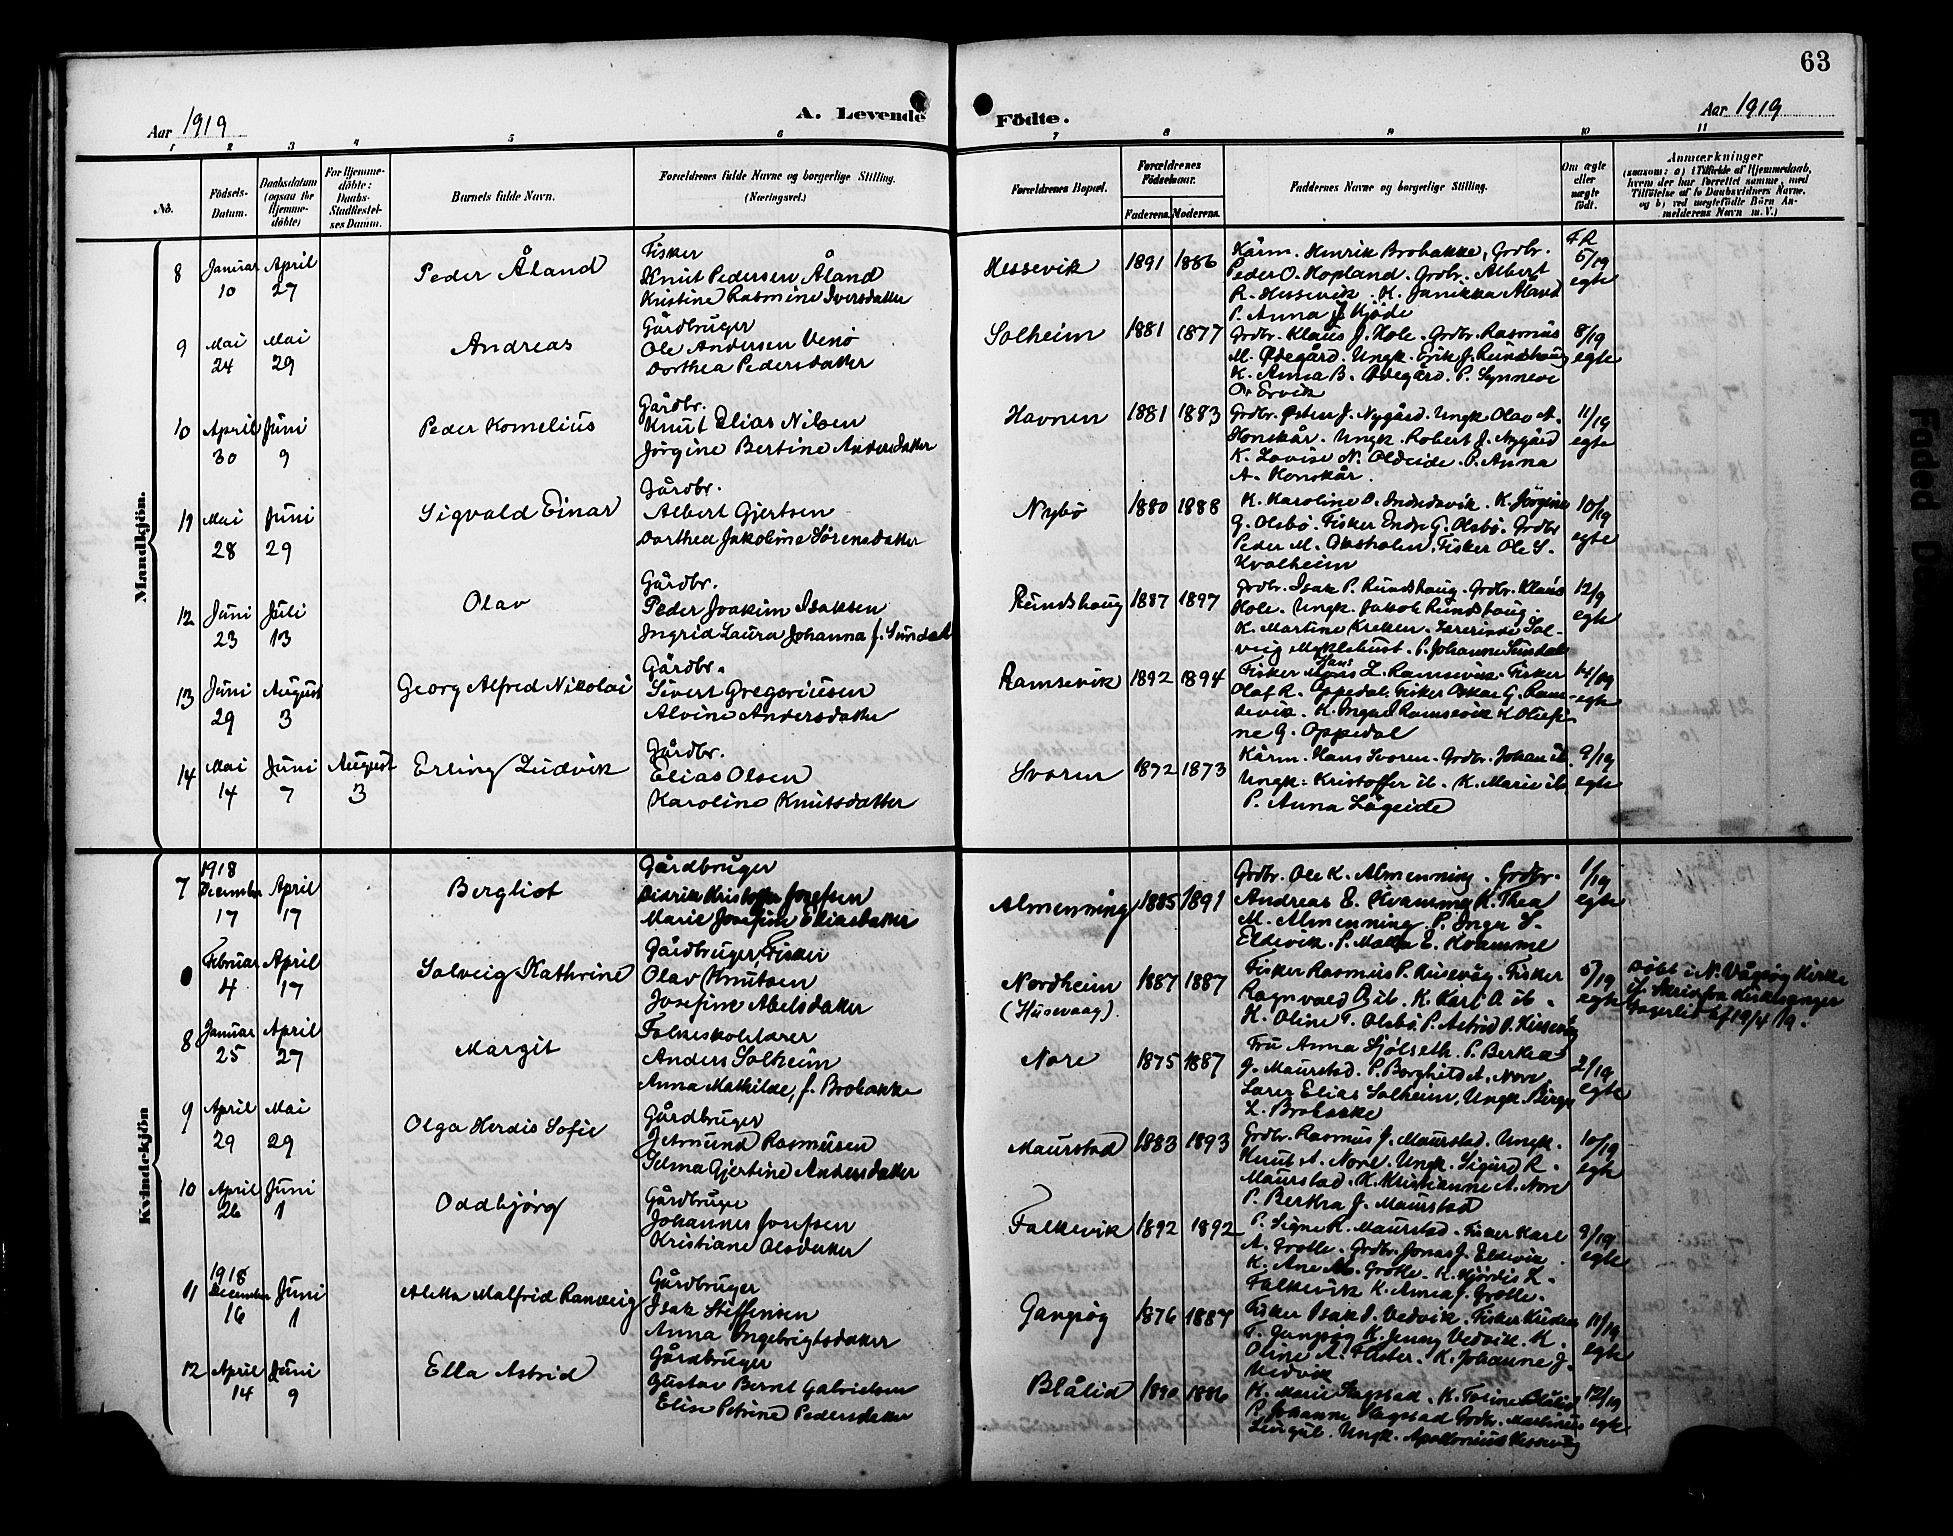 63
Aar 1919
A. Levende
Födte.
Aar 1919
1 2 3 4 5 6 7 8 9 10 11
No.
Födsels-Datum.
Daabsdatum (ogsaa for Hjemme-döbte)
For Hjemme-döbte: Daabs-Stadfæstel-ses Datum.
Barnets fulde Navn.
Forældrenes fulde Navne og borgerlige Stilling.
(Næringsvei.)
Forældrenes Bopæl.
Forældrenes Födselsaar.
Faderens. Moderens.
Faddernes Navne og borgerlige Stilling.
Om ægte eller uægte födt.
Anmærkninger
(saasom: a) i Tilfælde af Hjemmedaab,
hvem der har forrettet samme, med
Tilföielse af to Daabsvidners Navne,
og b) ved uægtefödte Börn An-
melderens Navn m. V.)
Mandkjön.
8 Januar 10 April 27 Peder Åland
Fisker
Knut Pedersen Åland
Kristine Rasmine Iversdatter
Hessevik 1891 1886
Kårm. Henrik Brobakke, Grdbr.
Peder O. Hopland. Grdbr. Albert
R. Hessevik. K. Janikka Åland
P. Anna J. Kjöde
FR 5/19 egte
9 Mai 24 Mai 29 Andreas
Gårdbruger
Ole Andersen Venö
Dorthea Pedersdatter
Solheim 1881 1877
Grdbr. Klaus J. Hole. Grdbr. Rasmus
M. Ödegård. Ungk. Erik J. Rundshaug
K. Anna B. Ödegård. P. Synneve
O. Ervik
8/19 egte
10 April 30 Juni 9 Peder Kornelius
Gårdbr.
Knut Elias Nilsen
Jörgine Bertine Andersdatter
Havnen 1881 1883
Grdbr. Östen J. Nygård. Ungk. Olav A.
Honskår. Ungk. Robert J. Nygård
K. Lovise N. Oldeide. P. Anna
A. Honskår.
11/19 egte
11 Mai 28 Juni 29 Sigvald Einar
Gårdbr.
Albert Gjertsen
Dorthea Jakoline Sörensdatter
Nybö 1880 1888
K. Karoline O. Indrevik. K. Jörgine
G. Olsbö. Fisker Endr. G. Olsbö. Grdbr
Peder M. Oksholm. Fisker Ole S.
Kvalheim
10/19 egte
12 Juni 23 Juli 13 Olav
Gårdbr.
Peder Joakim Isaksen
Ingrid Laura Johanna f. Sundal
Rundshaug 1887 1897
Grdbr. Isak P. Rundshaug. Grdbr. Klaus
Hole. Ungk. Jakob Rundshaug.
K. Martine Krekken. Lærerinde Sol-
veig Myklebust. P. Johanne Sundal
12/9 egte
13 Juni 29 August 3 Georg Alfred Nikolai
Gårdbr.
Sivert Gregoriusen
Alvine Andersdatter
Ramsevik 1892 1894
Fisker Hans L. Ramsevik. Fisker
Olaf R. Oppedal. Fisker Oskar G. Ram-
sevik. K. Inga Ramsevik K. Olufi-
ne G. Oppedal
14/19 egte
14 Mai 14 Juni 7 August 3 Erling Ludvik
Gårdbr.
Elias Olsen
Karoline Knutsdatter
Svoren 1872 1873
Kårm. Hans Svoren. Grdbr. Johan ib.
Ungk. Kristoffer ib. K. Marie ib.
P. Anna Lögeide
9/19 egte
Kvindekjön
7 1918 December 17 April 17 Bergliot
Gårdbruger
Didrik Kristoffer Josefsen
Marie Josefine Eliasdatter
Almenning 1885 1891
Grdbr. Ole K. Almenning. Grdbr.
Andreas E. Kvamme K. Thea
M. Almenning. P. Inga S.
Eldevik. P. Malla E. Kvamme
1/19 egte
Februar 4 April 17 Solveig Kathrine
Gårdbruger, Fisker
Olav Knutsen
Josefine Abelsdatter
Nordheim
(Husevaag). 1887 1887
Fisker Rasmus P. Husevåg. Fisker
Ragnvald O. ib. K. Kari O. ib.
K. Oline T. Olsbö. P. Astrid O. Husevåg
5/19 egte
Döbt i N. Vågsöy Kirke
if. Skriv fra Kirkesanger
Fagerlid af 19/4 19.
8 Januar 25 April 27 Margit
Folkeskolelærer
Anders Solheim
Anna Mathilde, f. Brobakke
Nore 1875 1887
Fru Anna Sjölseth. P. Berthea
G. Maurstad. P. Borghild A. Nore
Lærer Elias Solheim, Ungk. Birger
L. Brobakke
2/19 egte
9 April 29 Mai 29 Olga Herdis Sofie
Gårdbruger
Jetmund Rasmusen
Selma Gjertine Andersdatter
Maurstad 1883 1893
Grdbr. Rasmus J. Maurstad. Ungk.
Knut A. Nore. Ungk. Sigurd R.
Maurstad. K. Kristianne A. Nore
P. Bertha J. Maurstad
10/19 egte
10 April 26 Juni 1 Oddbjörg
Gårdbruger
Johannes Josefsen
Kristiane Olsdatter
Falkevik 1892 1892
P. Signe R. Maurstad. Fisker Karl
A. Grotle. Grdbr. Jonas J. Eldevik.
K. Ane M. Grotle. K. Hjördis L.
Falkevik K. Anna J. Grotle.
9/19 egte
11 1918 December 16 Juni 1 Aletta Malfrid Ranveig
Gårdbruger
Isak Steffensen
Anna Ingebrigtsdatter
Gangsöy 1876 1887
Fisker Isak P. Vedvik. Fisker
T. Gangsöy K. Jenny Vedvik. K.
Oline A. Flister. K. Johanne J.
Vedvik
11/19 egte
12 April 14 Juni 9 Ella Astrid
Gårdbruger
Gustav Bernt Gabrielsen
Elise Petrine Pedersdatter
Blålid 1890 1886
K. Marie Hagstad. K. Toline Blålid
P. Johanne Hagstad Grdbr. Martinus
Lingul. Ungk. Apollonius Hessevåg
12/19 egte
Faded